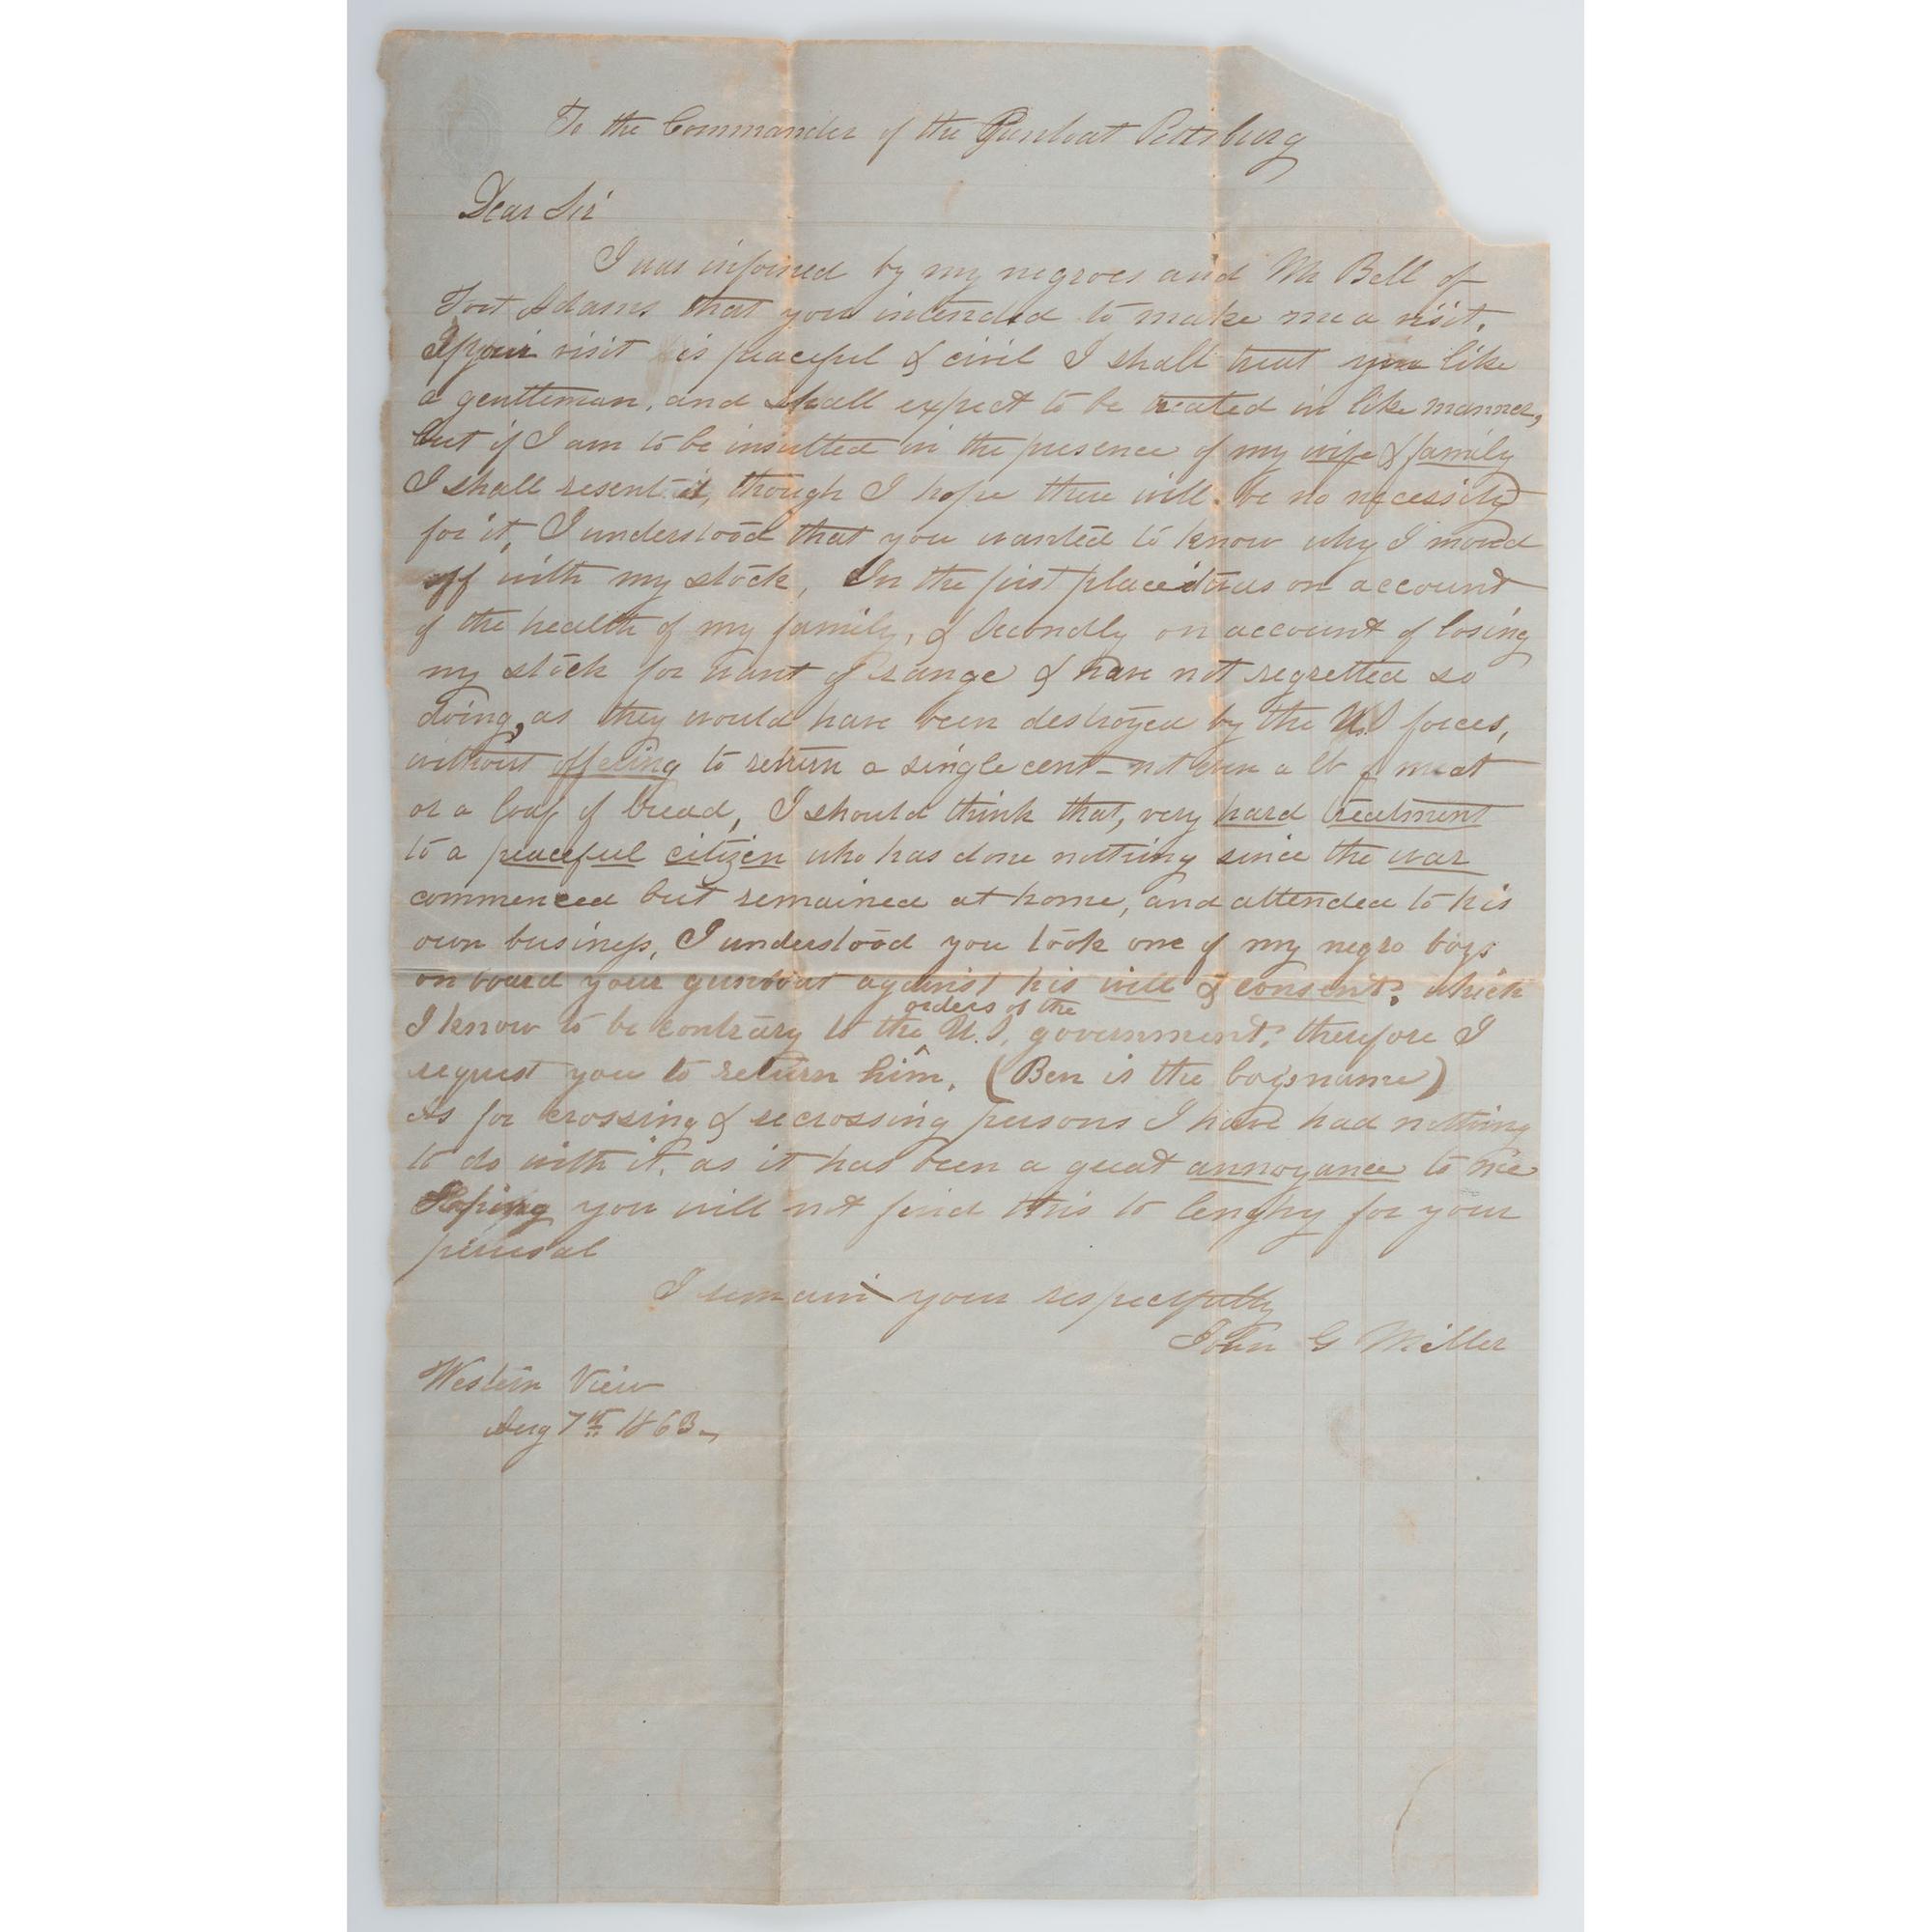 To the Commander of the Gunboat Pittsburg
Dear Sir
I was informed by my negroes and Mr Bell of
Fort Adams that you intended to make me a visit.
If your visit is peaceful & civil I shall treat you like
a gentleman, and shall expect to be treated in like manner,
but if I am to be insulted in the presence of my wife & family
I shall resent it, though I hope there will be no necessity
for it, I understood that you wanted to know why I moved
off with my stock, In the first place it was on account
of the health of my family, & Secondly on account of losing
my stock for want of range & have not regretted so
doing, as they would have been destroyed by the U.S forces,
without offering to return a single cent - not even a lb of meat
or a loaf of bread, I should think that, very hard treatment
to a peaceful citizen who has done nothing since the war
commenced but remained at home, and attended to his
own business, I understood you took one of my negro boys
on board your gunboat against his will & consent, which
I know to be contrary to the orders of the U.S. government, therefore I
request you to return him. (Ben is the boys name)
As for crossing & recrossing persons I have had nothing
to do with it, as it has been a great annoyance to me
Hoping you will not find this to lenghy for your
perusal
I remain your respectfully
John G Miller
Western View
Aug 7th 1863-